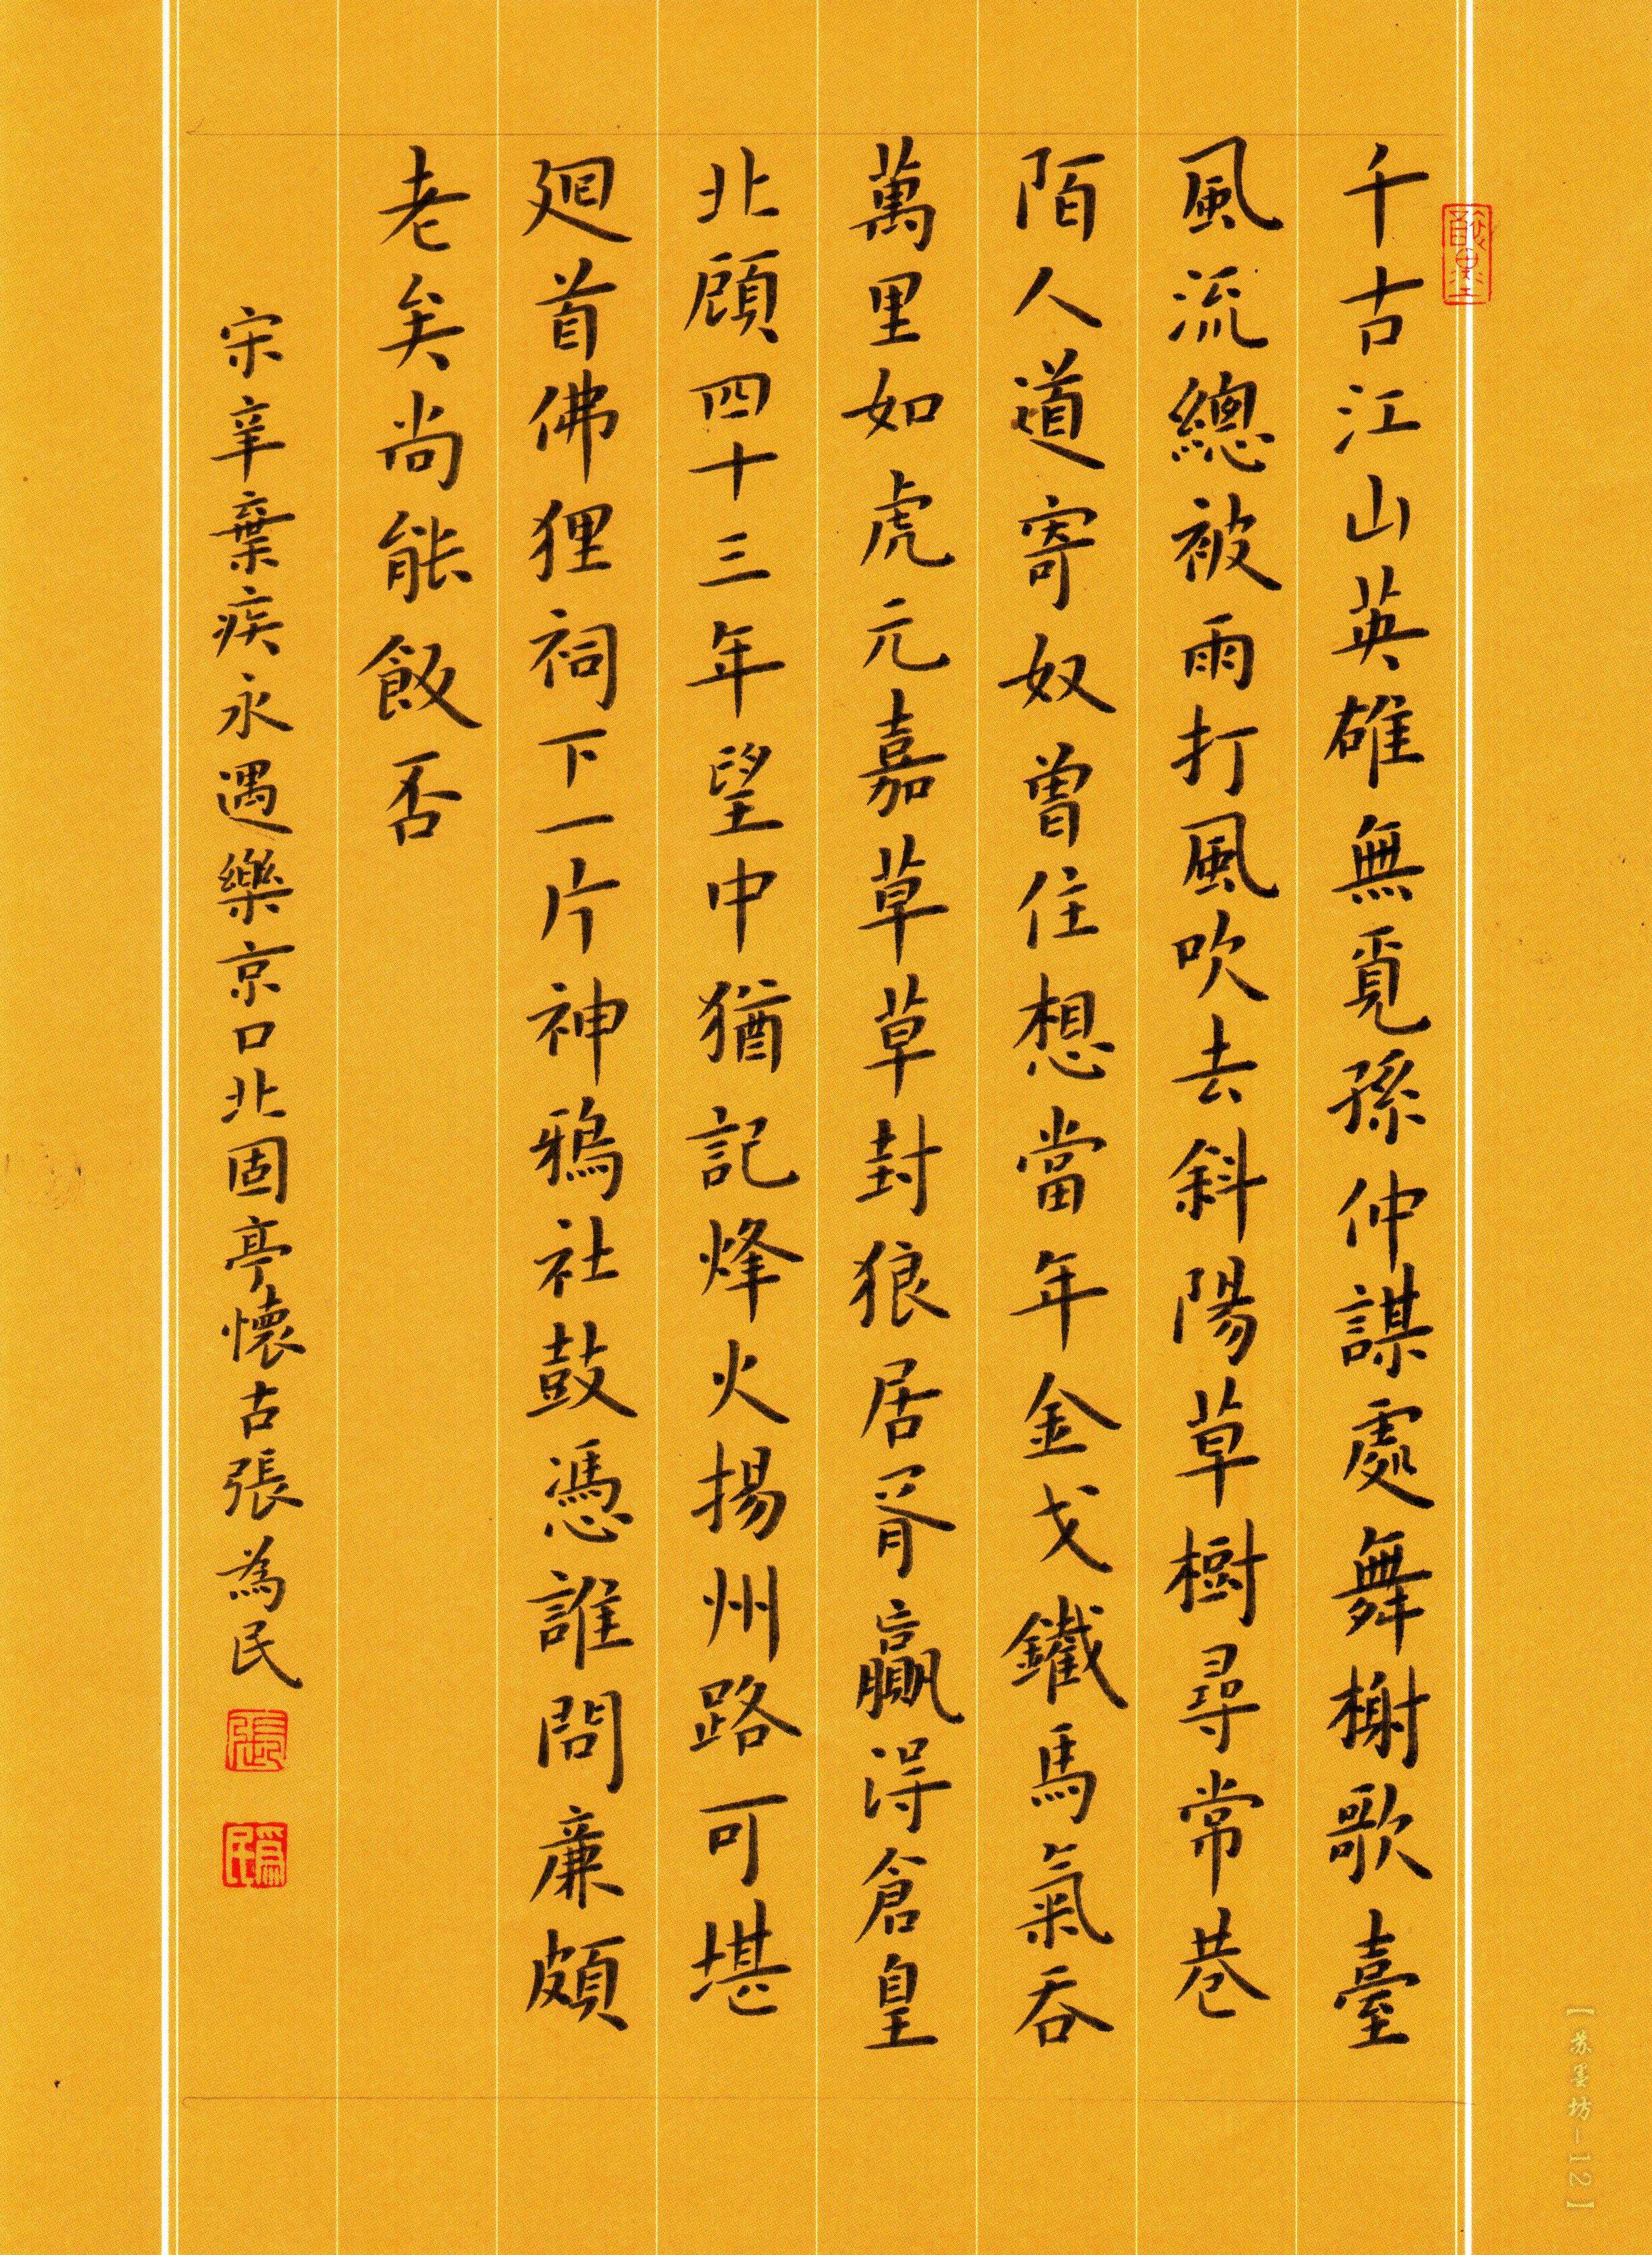 千古江山英雄無覓孫仲謀處舞榭歌臺
風流總被雨打風吹去斜陽草樹尋常巷
陌人道寄奴曾住想當年金戈鐵馬氣吞
萬里如虎元嘉草草封狼居胥贏得倉皇
北顧四十三年望中猶記烽火揚州路可堪
廻首佛狸祠下一片神鴉社鼓憑誰問廉頗
老矣尚能飯否
宋辛棄疾永遇樂京口北固亭懷古張為民
張
為民
【苏墨坊-12】